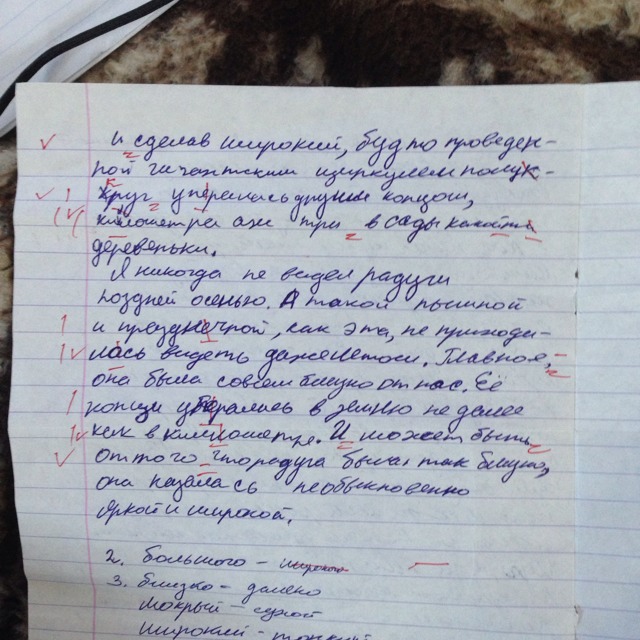 и сделав широкий, будто проведен-
ной гигантским циркулем полук-
круг уперлась другим концом,
километра аж три в сады какойто
деревеньки.
Я никогда не видел радуги
поздней осенью. А такой пышной
и праздничной, как эта, не приходи-
лась видеть даже летом. Главное,
она была совсем близко от нас. Её
концы упералась в землю не далее
как в километре. И может быть
оттого что радуга была так близко,
она казалась необыкновенно
яркой и широкой.
2. Большого - широкого
3. близко - далеко
Мокрый - сухой
Широкий - тонкий